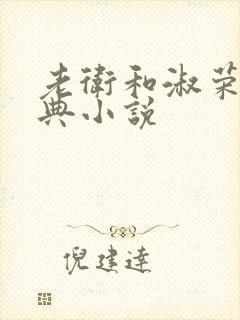 老衛和淑荣
典小说
倪建達